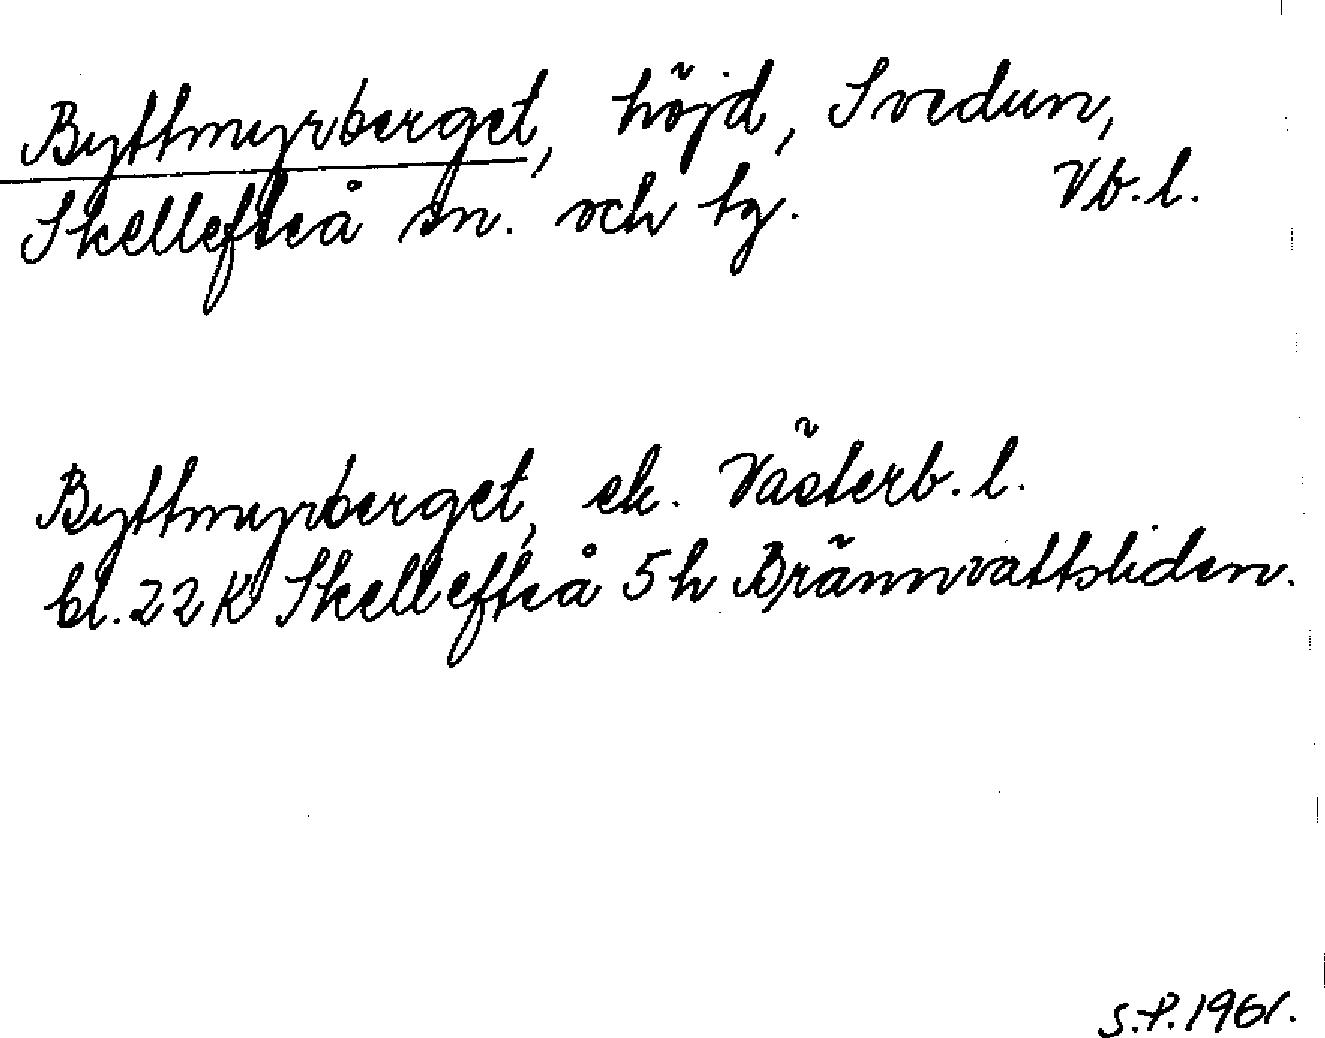 Byttmyrberget, höjd, Svedun,
Skellefteå sn. och tg. Vb.l.
Byttmyrberget, ek. Västerb.l.
bl. 22 K Skellefteå 5h Brännvattsliden.
S.P. 1961.